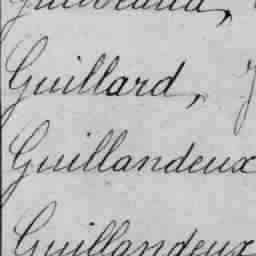 Guillard,
Guillandeux
Guillandeux